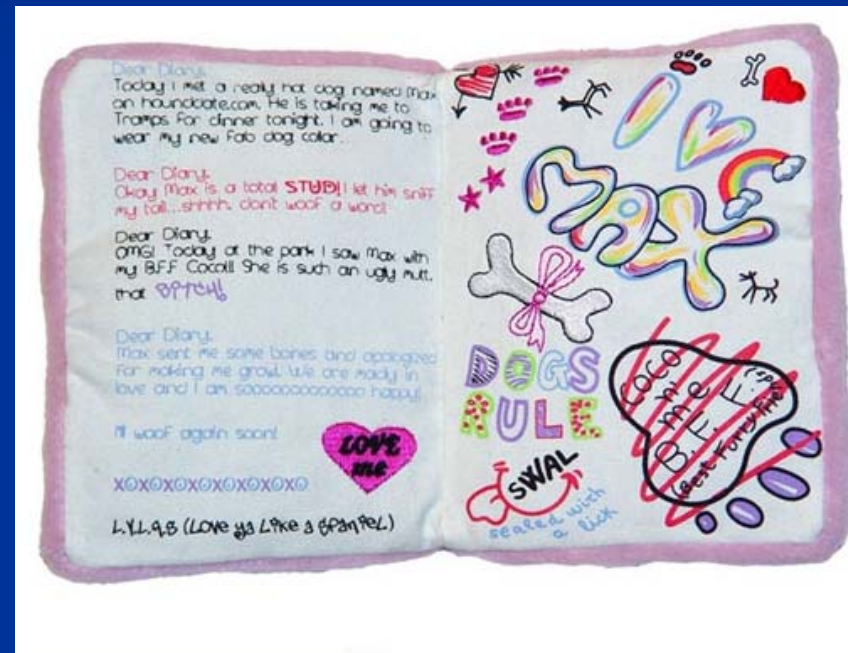 Dear Diary,
Today I met a really hot dog named Max
on hounddate.com. He is taking me to
Tramps for dinner tonight. I am going to
wear my new fab dog collar...
Dear Diary,
Okay Max is a total STUD! I let him sniff
my tail...shhhh, don't woof a word!
Dear Diary,
OMG! Today at the park I saw Max with
my B.F.F Coco!!! She is such an ugly mutt,
that BITCH!
Dear Diary,
Max sent me some bones and apologized
for making me growl. We are madly in
love and I am soooooooooooooo happy!
I'll woof again soon!
LOVE
me
XOXOXOXOXOXOXOXO
L.Y.L.a.S (Love ya Like a SPaniEL)
I
MAX
DOGS
RULE
SWAL
sealed with
a lick
COCO
n' me
B.F.F.
(Best Furry Friends)